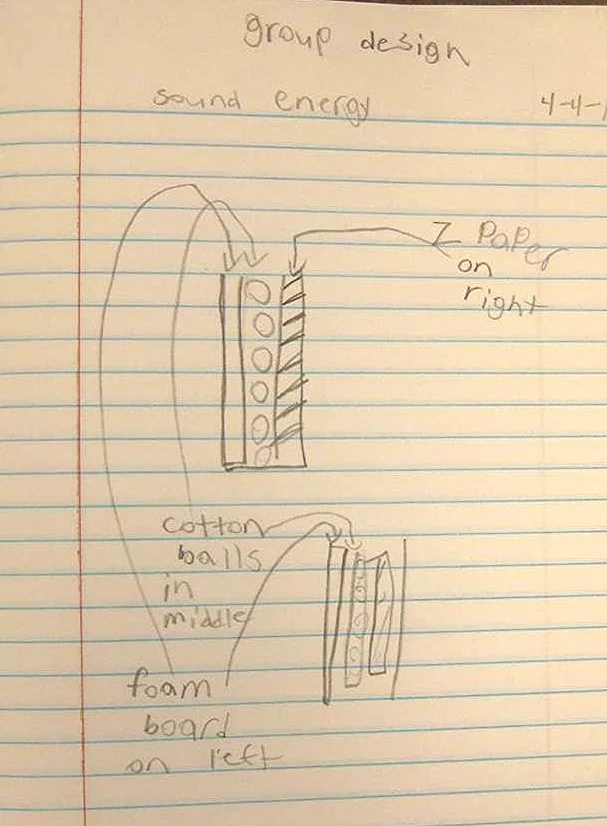 group design
sound energy 4-4-
Z Paper
on
right
cotton
balls
in
middle
foam
board
on left